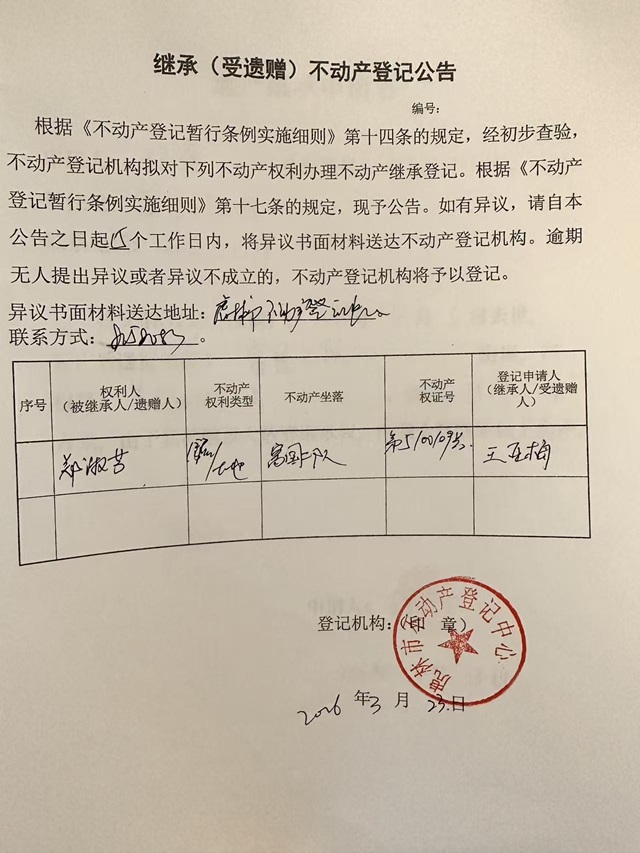 继承（受遗赠）不动产登记公告
编号：
根据《不动产登记暂行条例实施细则》第十四条的规定，经初步查验，
不动产登记机构拟对下列不动产权利办理不动产继承登记。根据《不动产
登记暂行条例实施细则》第十七条的规定，现予公告。如有异议，请自本
公告之日起15个工作日内，将异议书面材料送达不动产登记机构。逾期
无人提出异议或者异议不成立的，不动产登记机构将予以登记。
异议书面材料送达地址：
联系方式：
序号 权利人（被继承人/遗赠人） 不动产权利类型 不动产坐落 不动产权证号 登记申请人（继承人/受遗赠人）
郑淑芳 /土地 富国二队 第5100109号 王亚梅
登记机构：（印 章）
虎林市不动产登记中心
2026 年 3 月 23 日